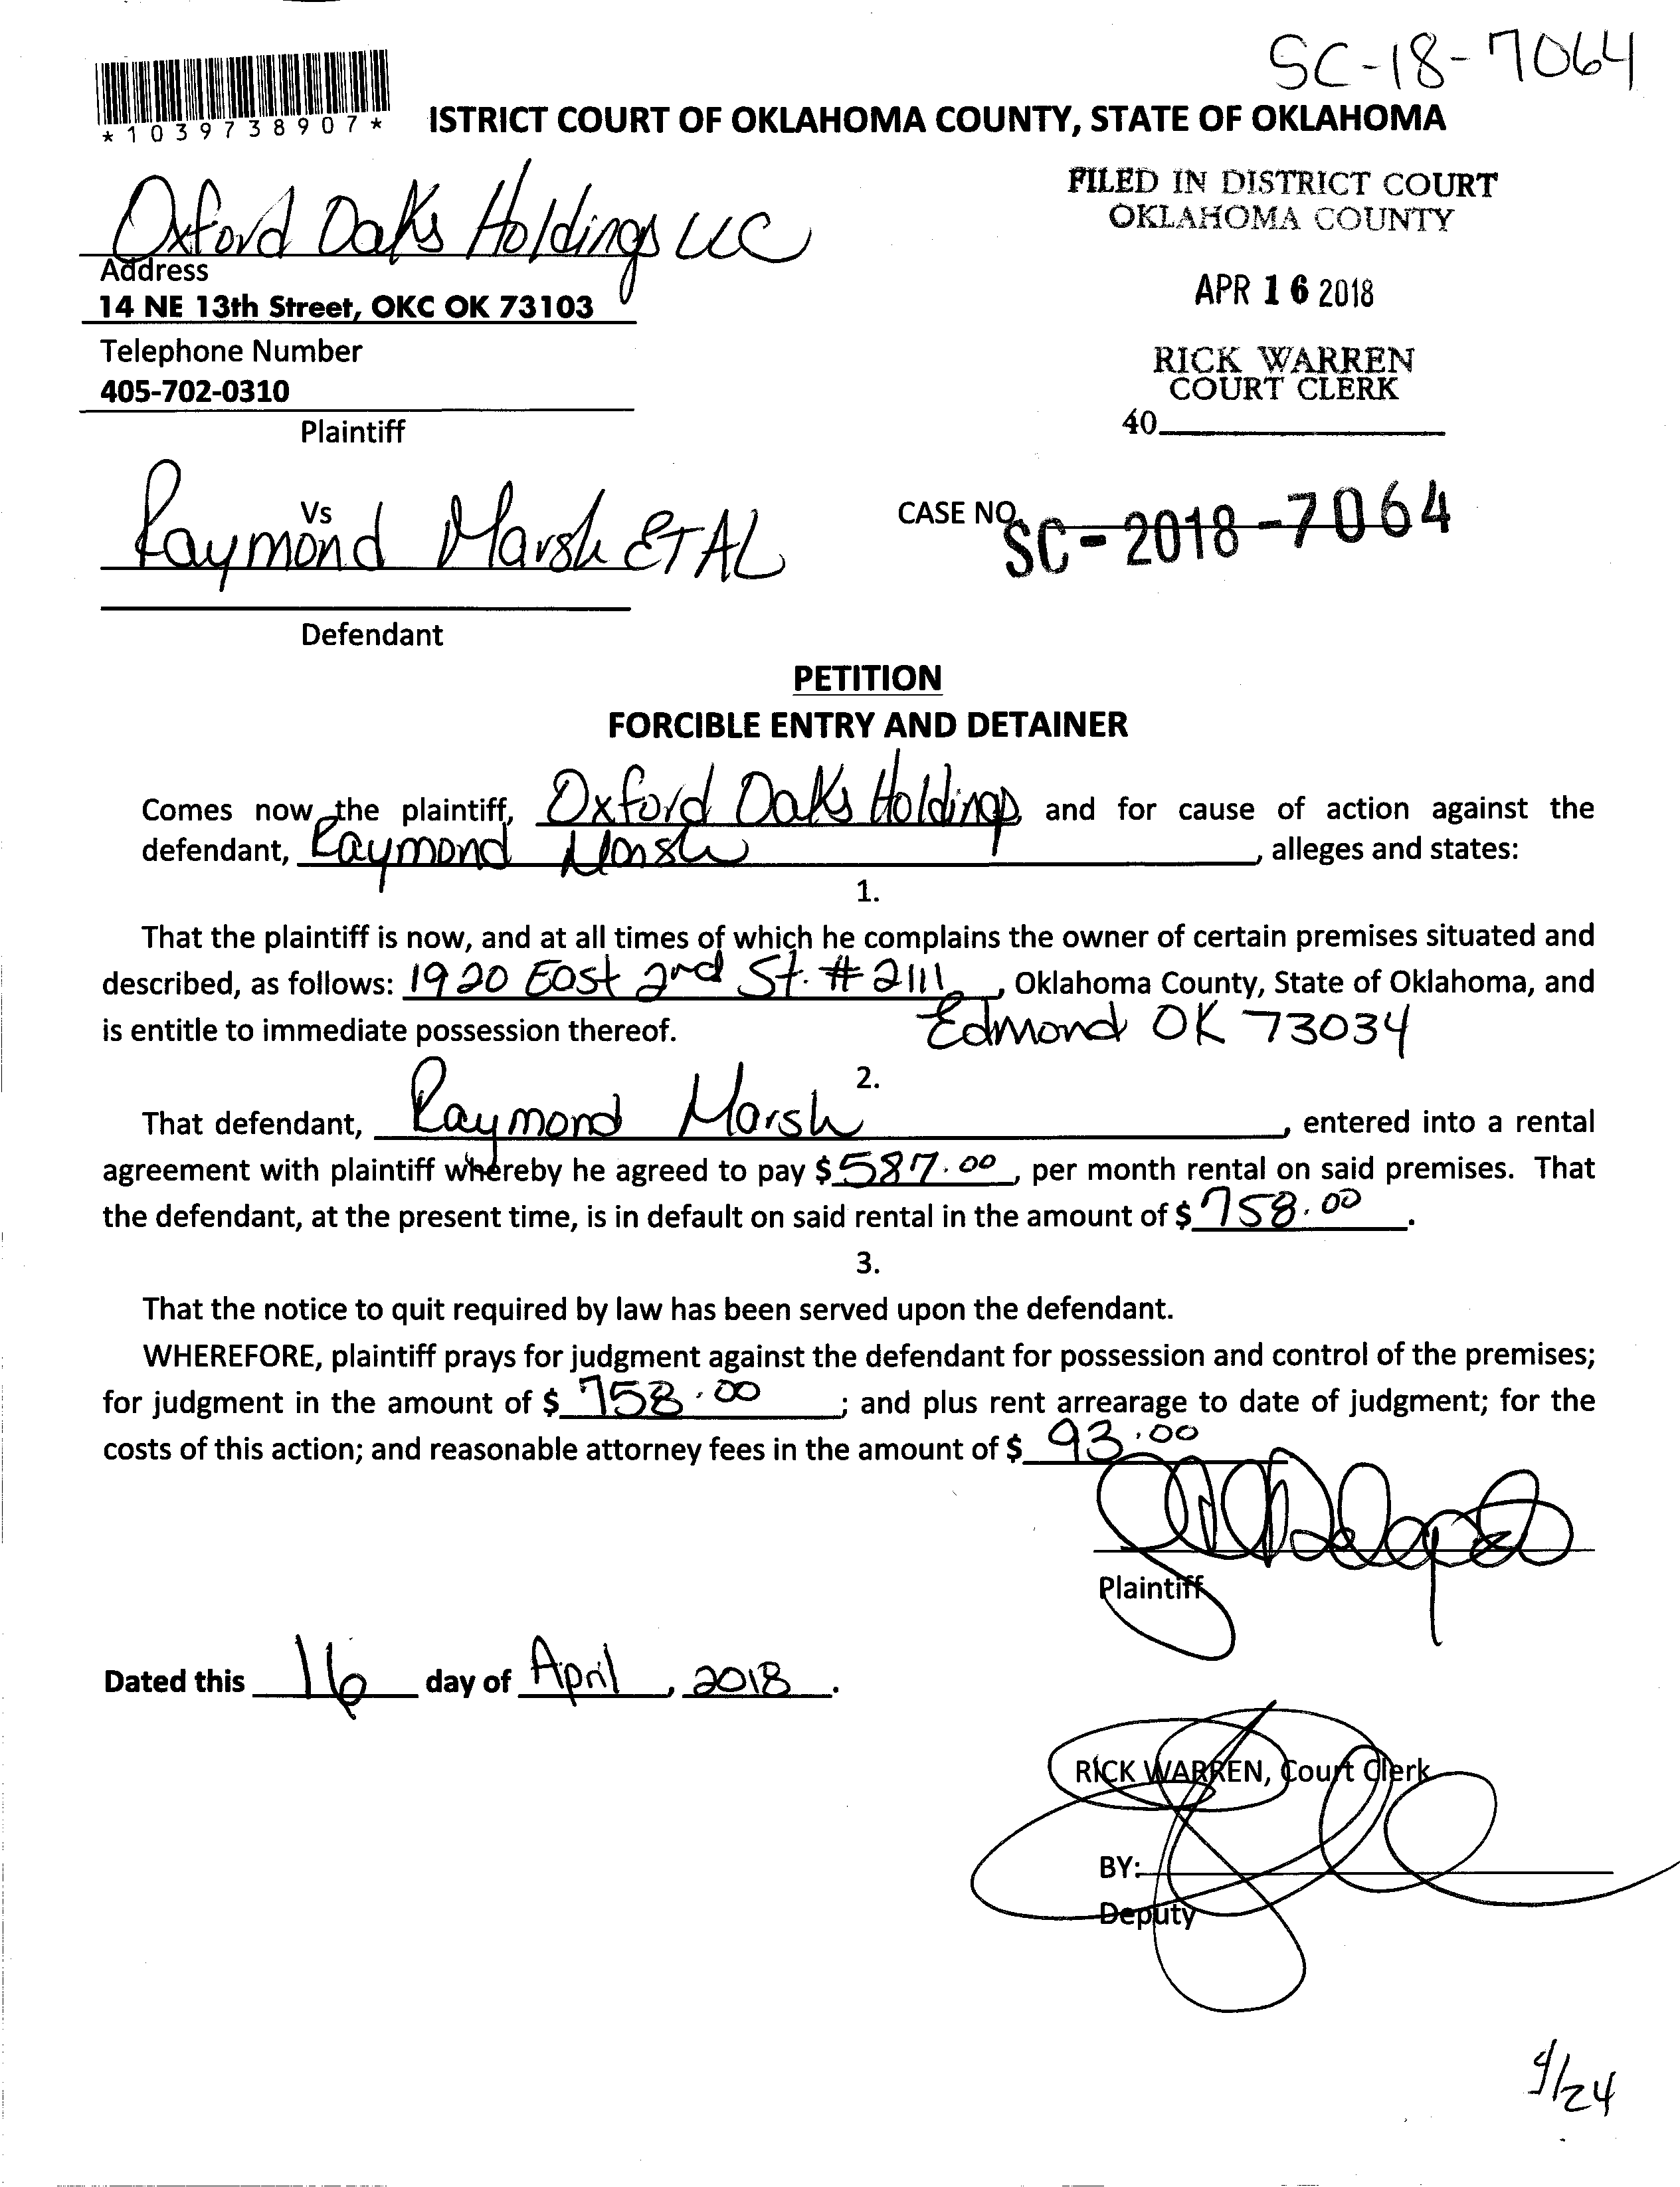 SC-18-7064
*1039738907*
ISTRICT COURT OF OKLAHOMA COUNTY, STATE OF OKLAHOMA
FILED IN DISTRICT COURT
OKLAHOMA COUNTY
APR 16 2018
RICK WARREN
COURT CLERK
40
Oxford Oaks Holdings LLC
Address
14 NE 13th Street, OKC OK 73103
Telephone Number
405-702-0310
Plaintiff
Vs
Raymond Marsh ET AL
Defendant
CASE NO. SC-2018-7064
PETITION
FORCIBLE ENTRY AND DETAINER
Comes now the plaintiff, Oxford Oaks Holdings, and for cause of action against the
defendant, Raymond Marsh, alleges and states:
1.
That the plaintiff is now, and at all times of which he complains the owner of certain premises situated and
described, as follows: 1920 East 2nd St. # 2111, Oklahoma County, State of Oklahoma, and
is entitle to immediate possession thereof. Edmond OK 73034
2.
That defendant, Raymond Marsh, entered into a rental
agreement with plaintiff whereby he agreed to pay $587.00, per month rental on said premises. That
the defendant, at the present time, is in default on said rental in the amount of $758.00.
3.
That the notice to quit required by law has been served upon the defendant.
WHEREFORE, plaintiff prays for judgment against the defendant for possession and control of the premises;
for judgment in the amount of $758.00; and plus rent arrearage to date of judgment; for the
costs of this action; and reasonable attorney fees in the amount of $93.00
Plaintiff
Dated this 16 day of April, 2018.
RICK WARREN, Court Clerk
BY:
Deputy
4/24